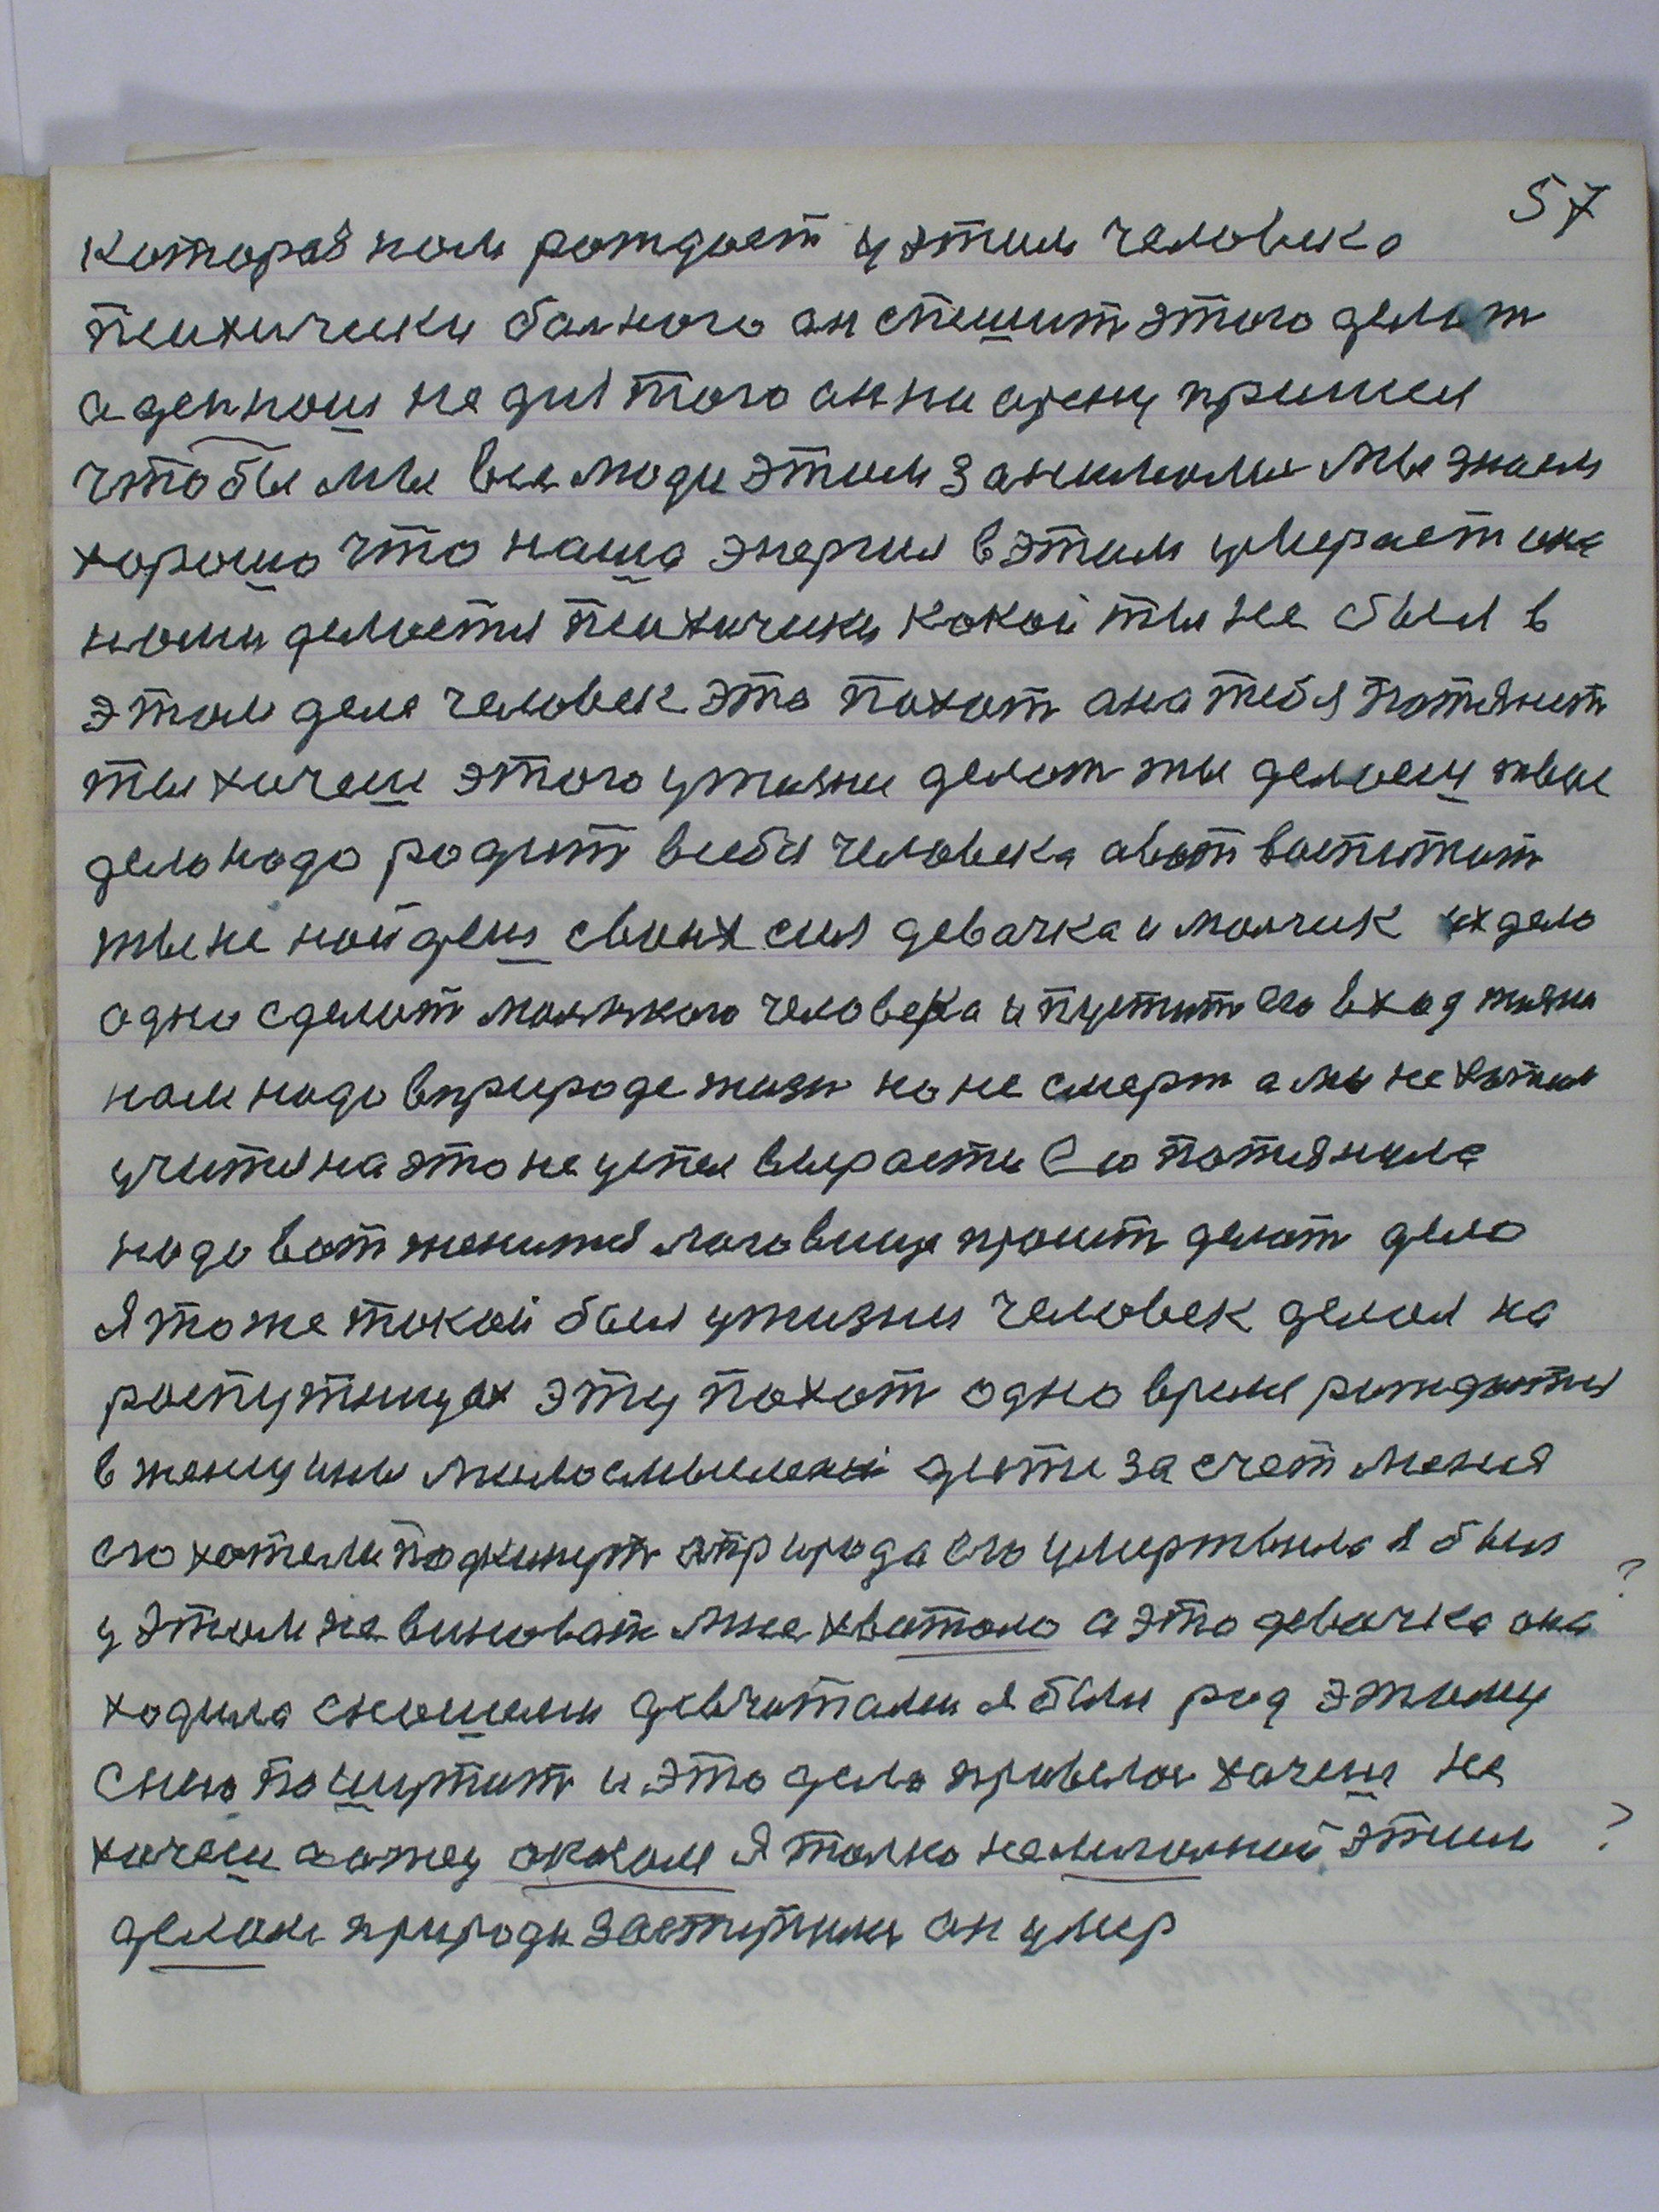 57
которая нам рождает у этим человека
психически балного он спешит этого делат
а
не для того он на арену пришел
чтобы мы все люди этим занимались мы знаем
хорошо что наша энергия в этим умирает она
нами делается психически какой ты не был в
этом деле человек это похот ана тебя потянит
ты хочеш этого у жизни делат ты делаеш твое
дело надо родит в себя человека а вот воспитат
ты не найдеш своих сил девачка и малчик их дело
одно сделат маленкого человека и пустит его в ход жизни
нам надо в природе жизн но не смерт а мы не хотим
учится на это не успел вырасти Его потянула
надо вот женится логовище троит делат дело
я тоже такой был у жизни человек делал на
распутицах эту похот одно время рождается
в женщины дети за счет меня
его хотели подкинут природа его умертвила я был
у этом не виноват мне хватало а это девачка она ?
ходила с нашими девчатами я был рад этому
с нею пошутит и это дело привелос хочеш не
хочеш я толко этим ?
делом природы он умер